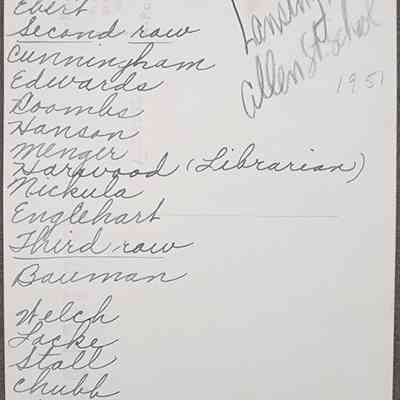 Ebert
Second row
Cunningham
Edwards
Doombs
Hanson
Menger
Harwood (Librarian)
Nickula
Englehart
Third row
Bauman
Welch
Locke
Stall
Chubb
Lansing
Allen St. School
1951